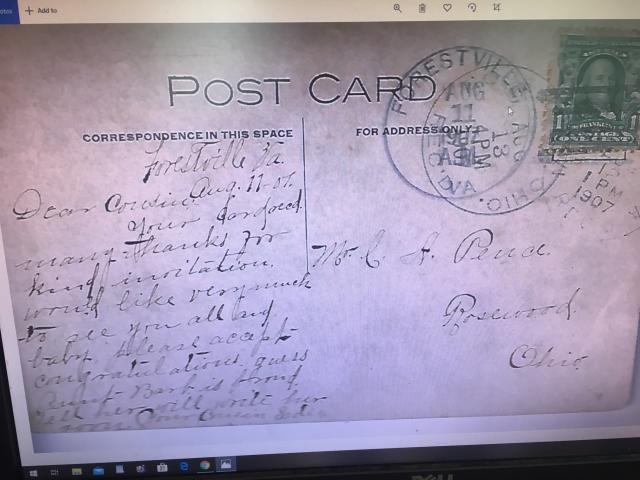 Add to
POST CARD
CORRESPONDENCE IN THIS SPACE
FOR ADDRESS ONLY
FORESTVILLE
AUG
11
VA
AUG
13
PM
OHIO
1 PM
1907
FRANKLIN
POSTAGE
ONE CENT
Forestville Va.
Aug. 11-07.
Dear Cousin,
Your card rec'd.
many thanks for
kind invitation.
would like very much
to see you all and
baby. please accept
congratulations. guess
Aunt Barb is proud.
tell her will write her
soon. Your Cousin
Mr. C. H. Pence.
Rosewood.
Ohio.
DELL